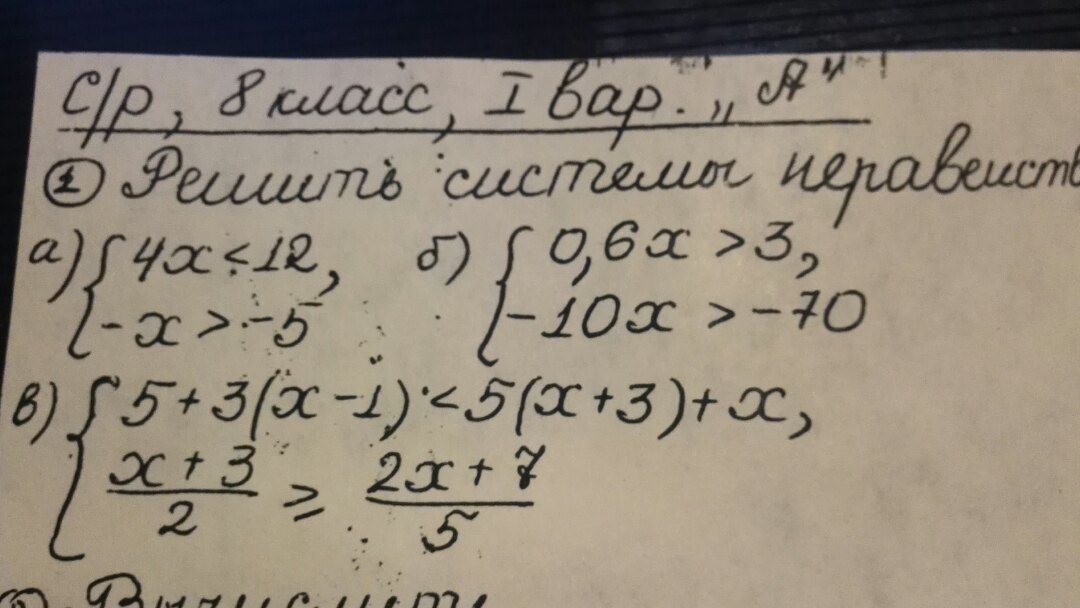 С/р, 8 класс, I вар. „А"
① Решить системы неравенств
а) { 4x < 12, б) { 0,6x > 3,
-x > -5 -10x > -70
в) { 5 + 3(x - 1) < 5(x + 3) + x,
(x + 3)/2 ≥ (2x + 7)/5
Вычислить